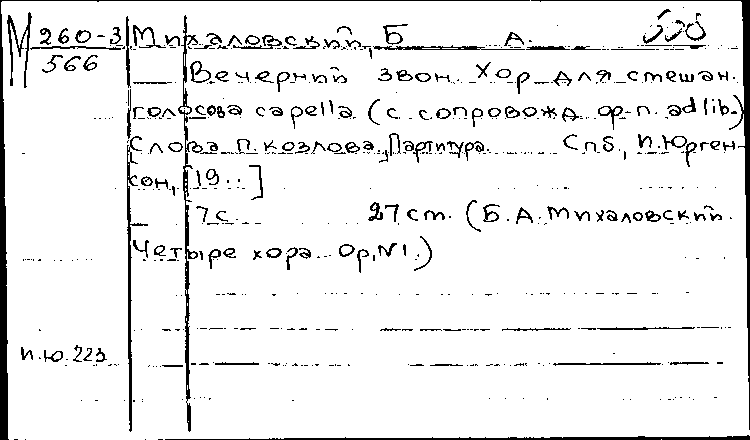 М 260-3 Михаловский, Б. А.
566
Вечерний звон. Хор для смешан.
голосов a capella (с сопровожд. ф-п. ad lib.)
Слова П. Козлова. Партитура. Спб., П. Юрген-
сон, [19..]
7 с. 27 см. (Б. А. Михаловский.
Четыре хора. Op. №1.)
П.Ю.223